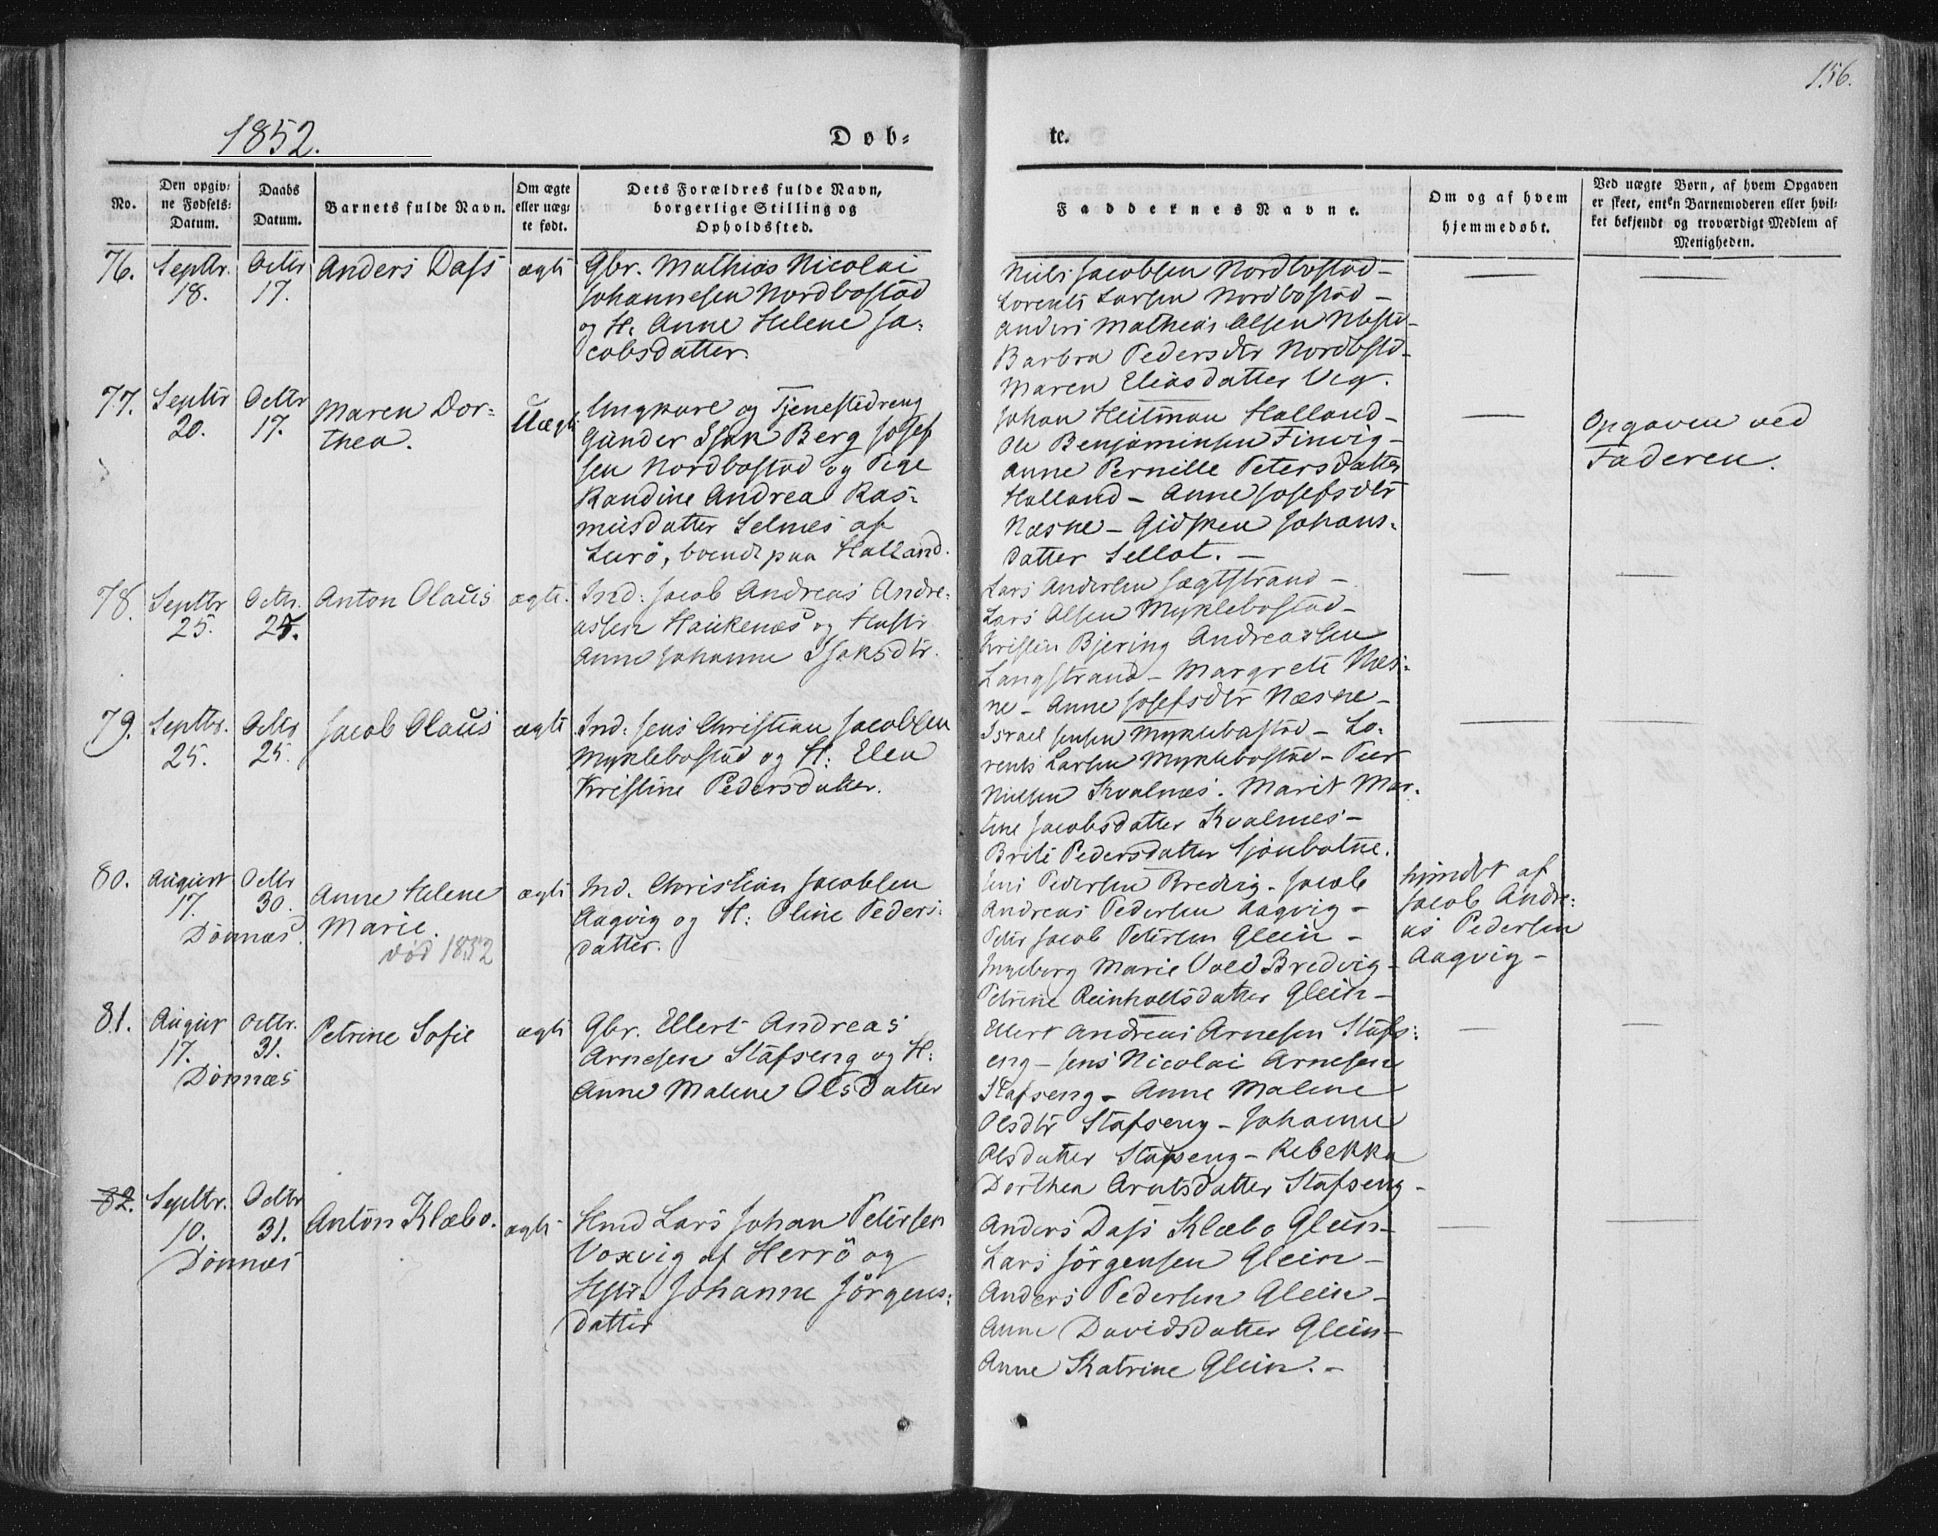 156.
1852.
Døb=
te.
No.
Den opgiv=
ne Fødsels=
Datum.
Daabs
Datum.
Barnets fulde Navn.
Om ægte
eller uæg=
te født.
Dets Forældres fulde Navn,
borgerlige Stilling og
Opholdssted.
Faddernes Navne.
Om og af hvem
hjemmedøbt.
Ved uægte Børn, af hvem Opgaven
er skeet, enten Barnemoderen eller hvil=
ket bekjendt og troværdigt Medlem af
Menigheden.
76.
Septbr.
18.
Octbr
17.
Anders Dass
ægte
Gbr. Mathias Nicolai
Johannesen Nordbostad
og H. Anne Helene Ja=
cobsdatter.
Niels Jacobsen Nordbostad –
Lorents Larsen Nordbostad –
Anders Mathias Olsen Nbstd –
Barbra Pedersdtr Nordbstd –
Maren Eliasdatter Veg.
77.
Septbr
20.
Octbr
17.
Maren Dor=
thea.
Uægte
Ungkare og Tjenestedreng
Gunder Isak Berg Josef
sen Nordbostad og Pige
Randine Andrea Ras=
musdatter Selnes af
Lurö, boende paa Halland.
Johan Heitman Halland –
Ole Benjaminsen Finvig –
Anne Pernille Petersdatter
Halland – Anne Josefsdtr
Næsne – Gidsken Johans=
datter Sellot. –
Opgaven ved
Faderen.
78.
Septbr
25.
Octbr.
25.
Anton Olaus
ægte.
Ind. Jacob Andreas Andre=
assen Haukenæs og Hustr
Anne Johanne Isaksdtr.
Lars Andersen Sægtstrand –
Lars Olsen Myklebostad –
Kristen Bjering Andreassen
Langstrand – Margrete Næs=
ne – Anne Josefsdtr Næsne –
79.
Septbr.
25.
Octbr
25.
Jacob Olaus
ægte
Ind. Jens Christian Jacobsen
Myklebostad og H. Elen
Kristine Pedersdatter.
Israel Jensen Myklebostad – Lo=
rents Larsen Myklebostad – Peer
Nielsen Kvalnæs. Marit Mar=
tine Jacobsdatter Kvalnæs –
Brite Pedersdatter Sjonbotne.
80.
August
17.
Octbr
30.
Dönnæs.
Anne Helene
Marie.
död 1852
ægte
Ind. Christian Jacobsen
Aagvig og H. Oline Peders=
datter.
Jens Pedersen Bredvig – Jacob
Andreas Pedersen Aagvig –
Peter Jacob Petersen Glein –
Ingeborg Marie Vold Bredvig –
Petrine Reinholtsdatter Glein –
hjmdt af
Jacob Andre=
as Pedersen
Aagvig –
81.
August
17.
Octbr.
31.
Dönnæs
Petrine Sofie
ægte
Gbr. Ellert Andreas
Arnesen Stafseng og H.
Anne Malene Olsdatter
Ellert Andreas Arnesen Stafs=
eng – Jens Nicolai Arnesen
Stafseng – Anne Malene
Olsdtr Stafseng – Johanne
Olsdatter Stafseng – Rebekka
Dorthea Arntsdatter Stafseng –
82.
Septbr.
10.
Octbr
31.
Dönnæs
Anton Klæbo.
ægte
Hmd Lars Johan Petersen
Voxvig af Herrö og
Hstr. Johanne Jörgens=
datter
Anders Dass Klæbo Glein –
Lars Jörgensen Glein –
Anders Pedersen Glein –
Anne Davidsdatter Glein –
Anne Katrine Glein. –